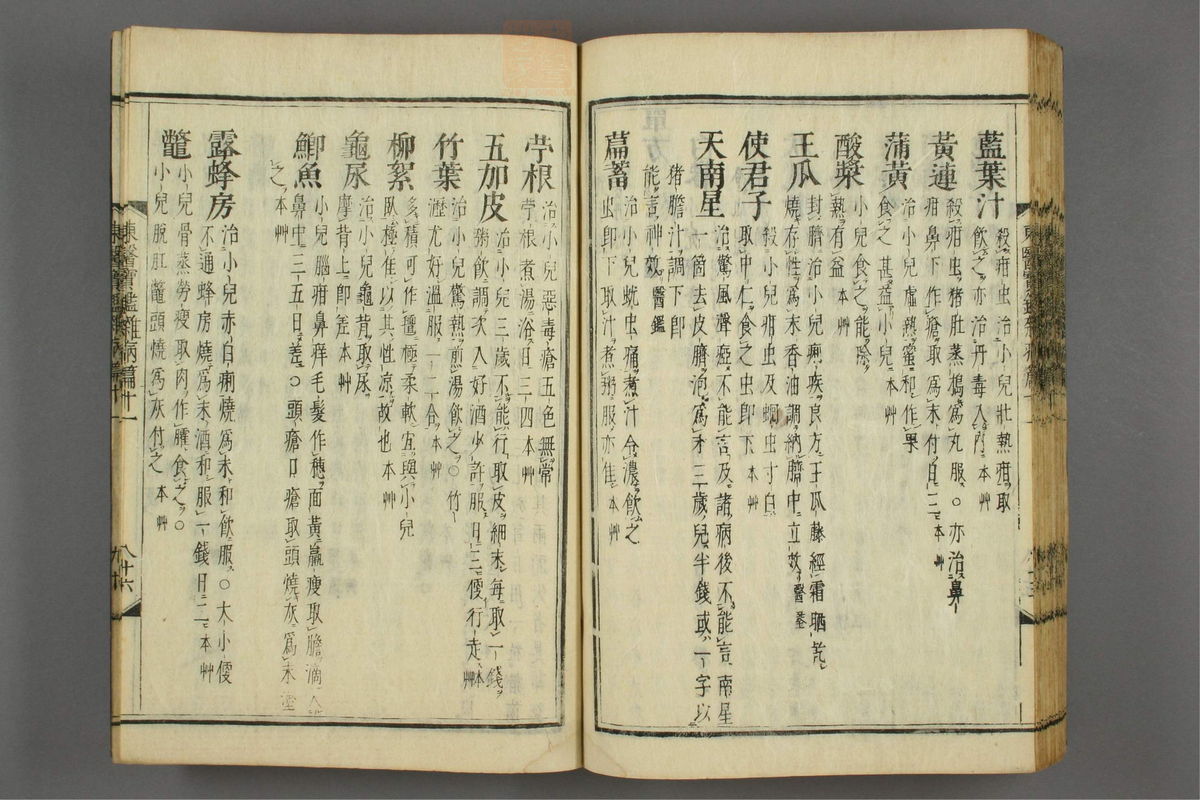 藍葉汁 殺疳虫治小兒壯熱疳取
飲之亦治丹毒入內本艸
黃連 殺疳虫猪肚蒸搗爲丸服○亦治鼻
疳鼻下作瘡取爲末付日三本艸
蒲黃 治小兒虛熱蜜和作果
食之甚益小兒本艸
酸漿 小兒食之能除
熱有益本艸
王瓜 封臍治小兒痢疾良方王瓜藤經霜晒乾
燒存性爲末香油調納臍中立效醫鑒
使君子 殺小兒疳虫及蚘虫寸白
取中仁食之虫卽下本艸
天南星 治驚風聲瘂不能言及諸病後不能言南星
一箇去皮臍泡爲末三歲兒半錢或一字以
猪膽汁調下卽
能言神效醫鑑
萹蓄 治小兒蚘虫痛煮汁令濃飲之
虫卽下取汁煮粥服亦佳本艸
苧根 治小兒惡毒瘡五色無常
苧根煮湯浴日三四本艸
五加皮 治小兒三歲不能行取皮細末每取一錢
粥飮調次入好酒少許服日三便行走本艸
竹葉 治小兒驚熱煎湯飲之○竹
瀝尤好溫服一二合本艸
柳絮 多積可作擅極柔軟宜與小兒
臥極佳以其性凉故也本艸
龜尿 治小兒龜背取尿
摩背上卽差本艸
鯽魚 小兒腦疳鼻痒毛髮作穗面黃羸瘦取膽滴入
鼻中三五日差○頭瘡口瘡取頭燒灰爲末塗
之本艸
露蜂房 治小兒赤白痢燒爲末和飲服○大小便
不通蜂房燒爲末酒和服一錢日二本艸
鼈 小兒骨蒸勞瘦取肉作臛食之○
小兒脫肛鼈頭燒爲灰付之本艸
東醫寶鑑雜病篇十一
八十六